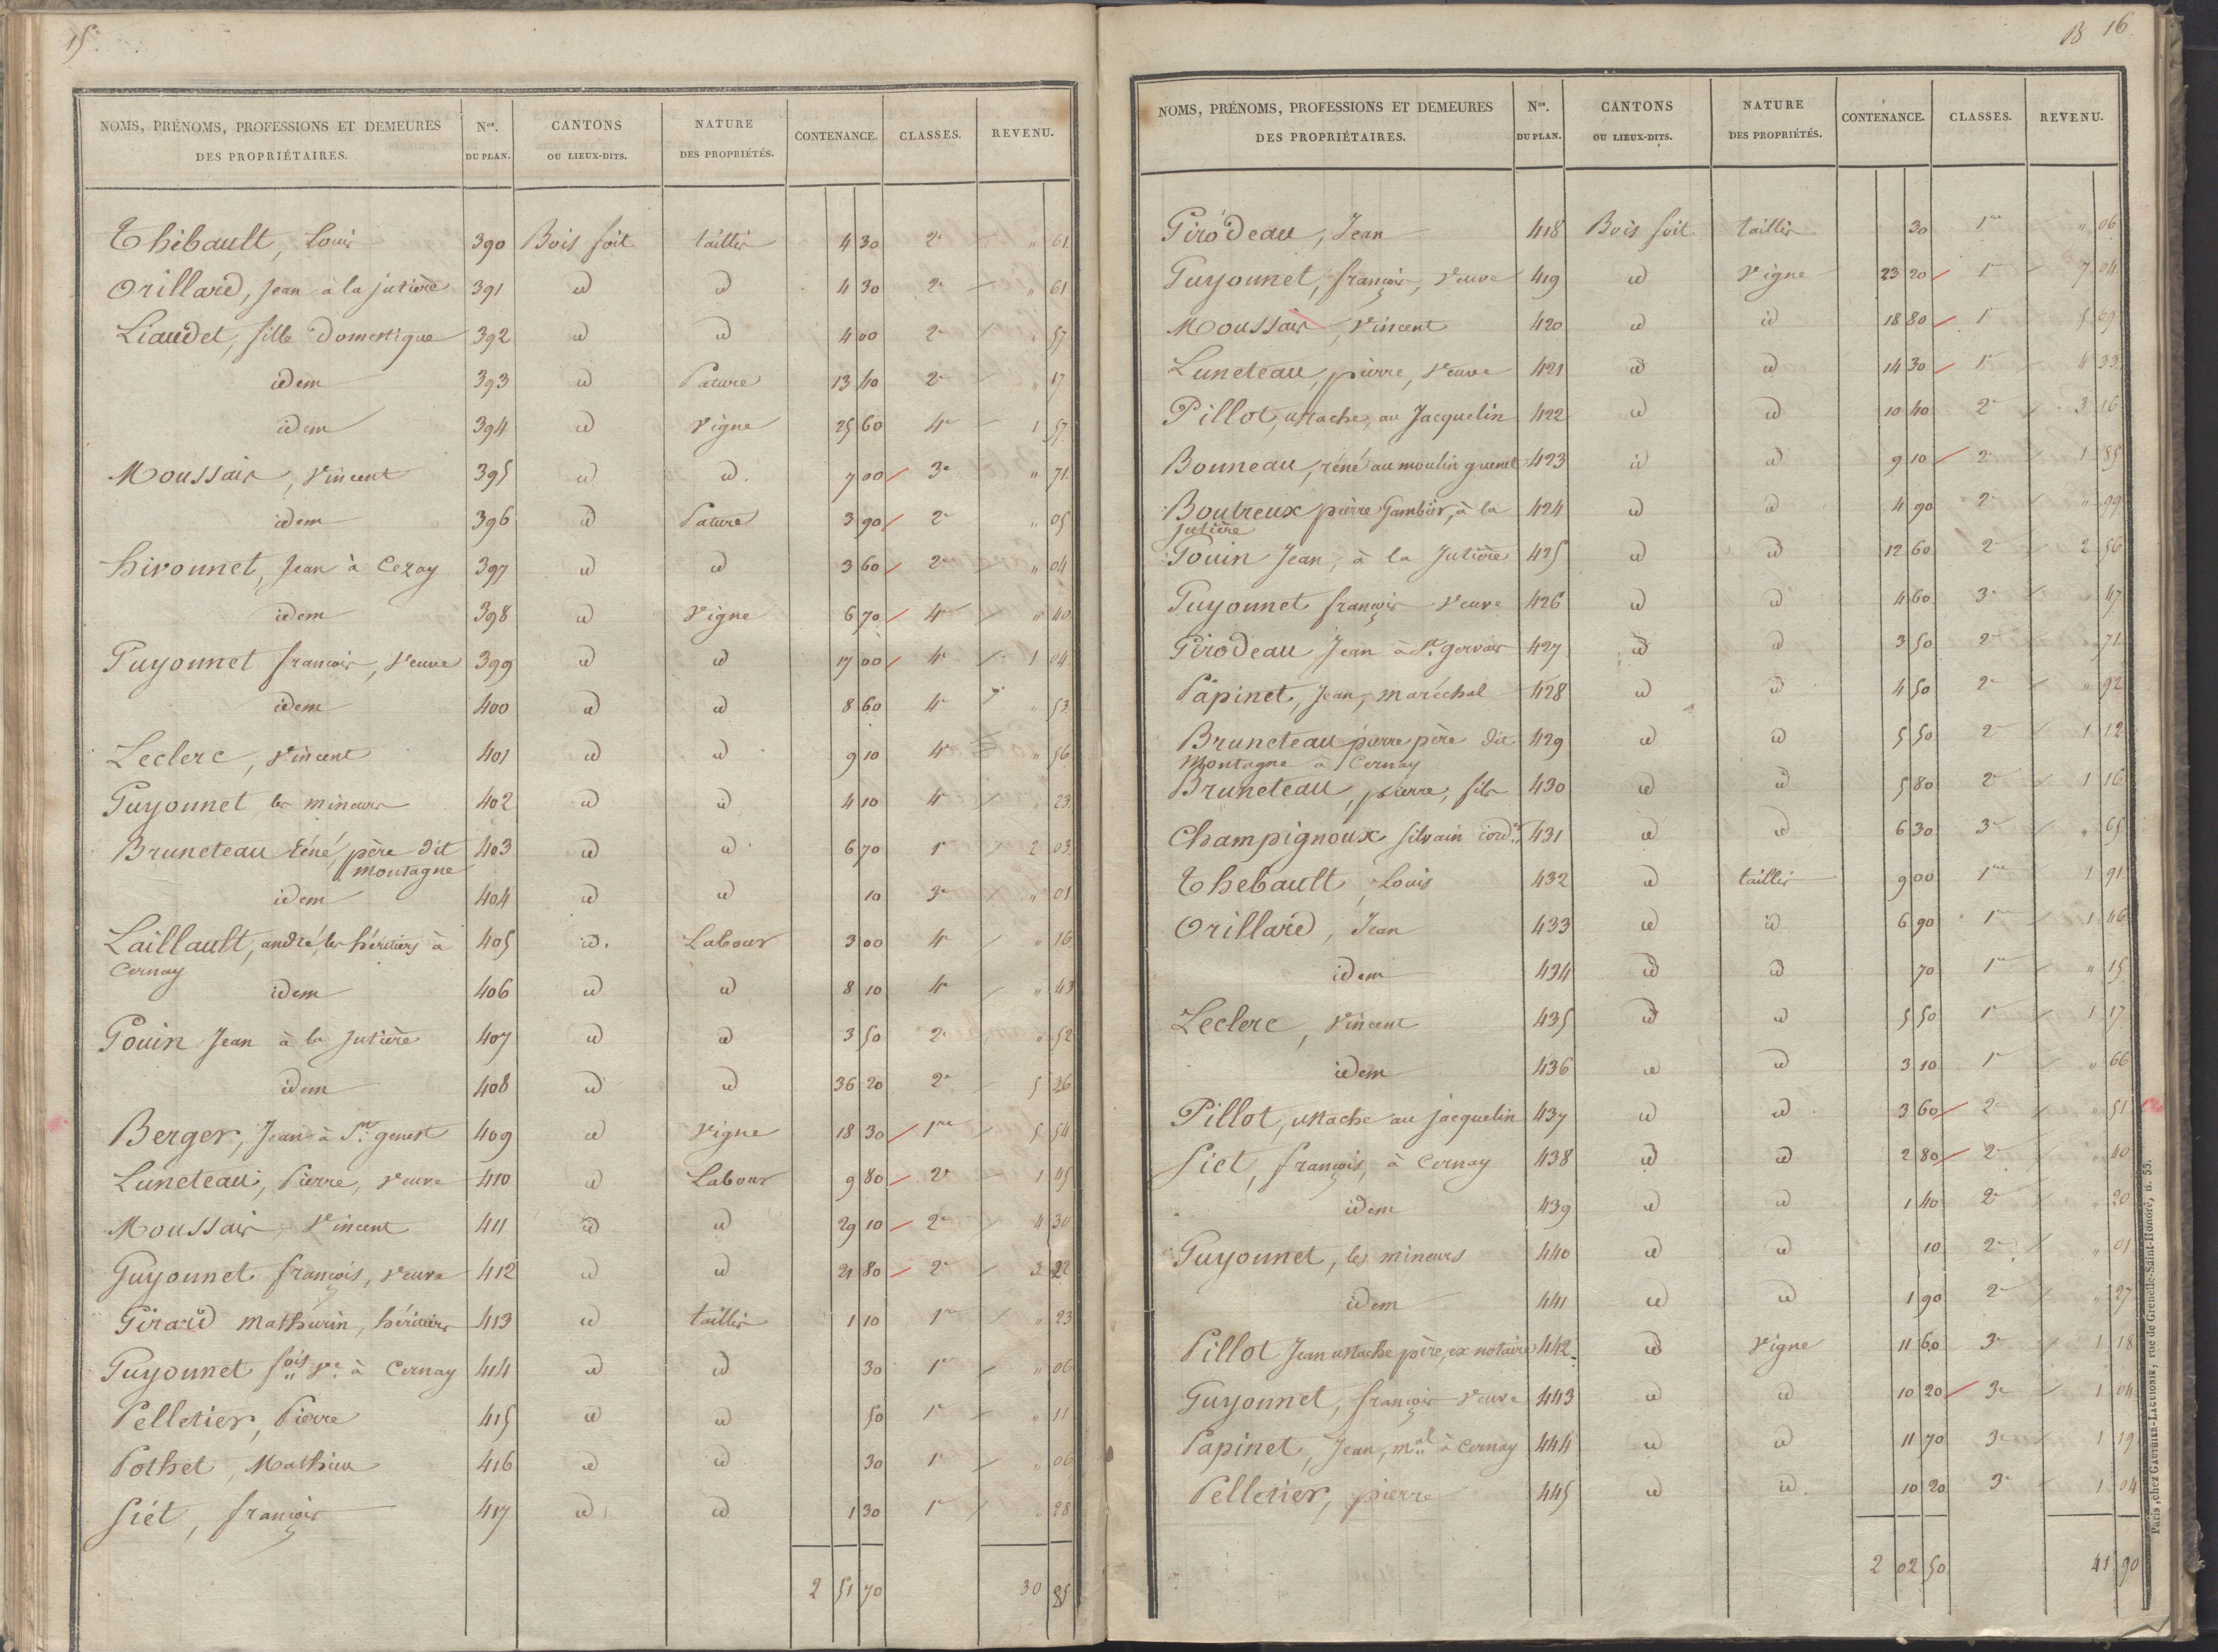 15
NOMS, PRÉNOMS, PROFESSIONS ET DEMEURES DES PROPRIÉTAIRES. Nos. DU PLAN. CANTONS OU LIEUX-DITS. NATURE DES PROPRIÉTÉS. CONTENANCE. CLASSES. REVENU.
Thébault, Louis 390 Bois soit taillis 4 30 2e " 61
Orillard, Jean à la jutière 391 id id 4 30 2e " 61
Liaudet, fille Domestique 392 id id 4 00 2e " 57
idem 393 id Pature 13 40 2e " 17
idem 394 id Vigne 25 60 4e 1 57
Moussais, Vincent 395 id id. 7 00 3e " 71
idem 396 id Pature 3 90 2e " 05
hivonnet, Jean à Cezay 397 id id 3 60 2e " 04
idem 398 id Vigne 6 70 4e " 40
Guyonnet francois, Veuve 399 id id 17 00 4e 1 04
idem 400 id id 8 60 4e " 53
Leclerc, Vincent 401 id id 9 10 4e " 56
Guyonnet les mineurs 402 id id 4 10 4e " 23
Bruneteau réné, père dit 403 id id 6 70 1e 2 03
montagne
idem 404 id id 10 3e " 01
Laillault, andré, les héritiers à 405 id. Labour 3 00 4e " 16
Cernay
idem 406 id id 8 10 4e " 43
Gouin Jean à la Jutière 407 id id 3 50 2e " 52
idem 408 id id 36 20 2e 5 26
Berger, Jean à St. genest 409 id Vigne 18 30 1re 5 54
Luneteau, Pierre, Veuve 410 id Labour 9 80 2e 1 45
Moussais, Vincent 411 id id 29 10 2e 4 30
Guyonnet françois, Veuve 412 id id 21 80 2e 3 22
Girard Mathurin, héritiers 413 id taillis 1 10 1re " 23
Guyonnet fois Ve à Cernay 414 id id 30 1re " 06
Pelletier, Pierre 415 id id 50 1e " 11
Pothet, Mathieu 416 id id 30 1e " 06
Siét, françois 417 id id 1 30 1e " 28
2 51 70 30 85
B 16
NOMS, PRÉNOMS, PROFESSIONS ET DEMEURES DES PROPRIÉTAIRES. Nos. DU PLAN. CANTONS OU LIEUX-DITS. NATURE DES PROPRIÉTÉS. CONTENANCE. CLASSES. REVENU.
Girodeau, Jean 418 Bois soit taillis 30 1re " 06
Guyonnet, françois, Veuve 419 id Vigne 23 20 1e 7 04
Moussais, Vincent 420 id id 18 80 1e 5 69
Luneteau, pierre, Veuve 421 id id 14 30 1e 4 33
Pillot, ustache, au Jacquelin 422 id id 10 40 2e 3 16
Bonneau, réné au moulin guenet 423 id id 9 10 2e 1 85
Boutreux pierre Gambier, à la 424 id id 4 90 2e " 99
jutière
Gouin Jean, à la Jutière 425 id id 12 60 2e 2 56
Guyonnet françois Veuve 426 id id 4 60 3e " 47
Girodeau, Jean à St. gervais 427 id id 3 50 2e " 71
Papinet, Jean, maréchal 428 id id 4 50 2e " 92
Bruneteau pierre père dit 429 id id 5 50 2e 1 12
Montagne à Cernay
Bruneteau, pierre, fils 430 id id 5 80 2e 1 16
Champignoux silvain 431 id id 6 30 3e " 65
Thebault, Louis 432 id taillis 9 00 1re 1 91
Orillard, Jean 433 id id 6 90 1re 1 46
idem 434 id id 70 1re " 15
Leclerc, Vincent 435 id id 5 50 1e 1 17
idem 436 id id 3 10 1e " 66
Pillot, ustache au jacquelin 437 id id 3 60 2e " 51
Siet, françois, à Cernay 438 id id 2 80 2e " 40
idem 439 id id 1 40 2e " 20
Guyonnet, les mineurs 440 id id 10 2e " 01
idem 441 id id 1 90 2e " 27
Pillot Jean ustache père, ex notaire 442 id Vigne 11 60 3e 1 18
Guyonnet, françois Veuve 443 id id 10 20 3e 1 04
Papinet, Jean, mal à Cernay 444 id id 11 70 3e 1 19
Pelletier, pierre 445 id id. 10 20 3e 1 04
2 02 50 41 90
Paris, chez GAUTHIER-LAGUIONIE, rue de Grenelle-Saint-Honoré, n. 55.